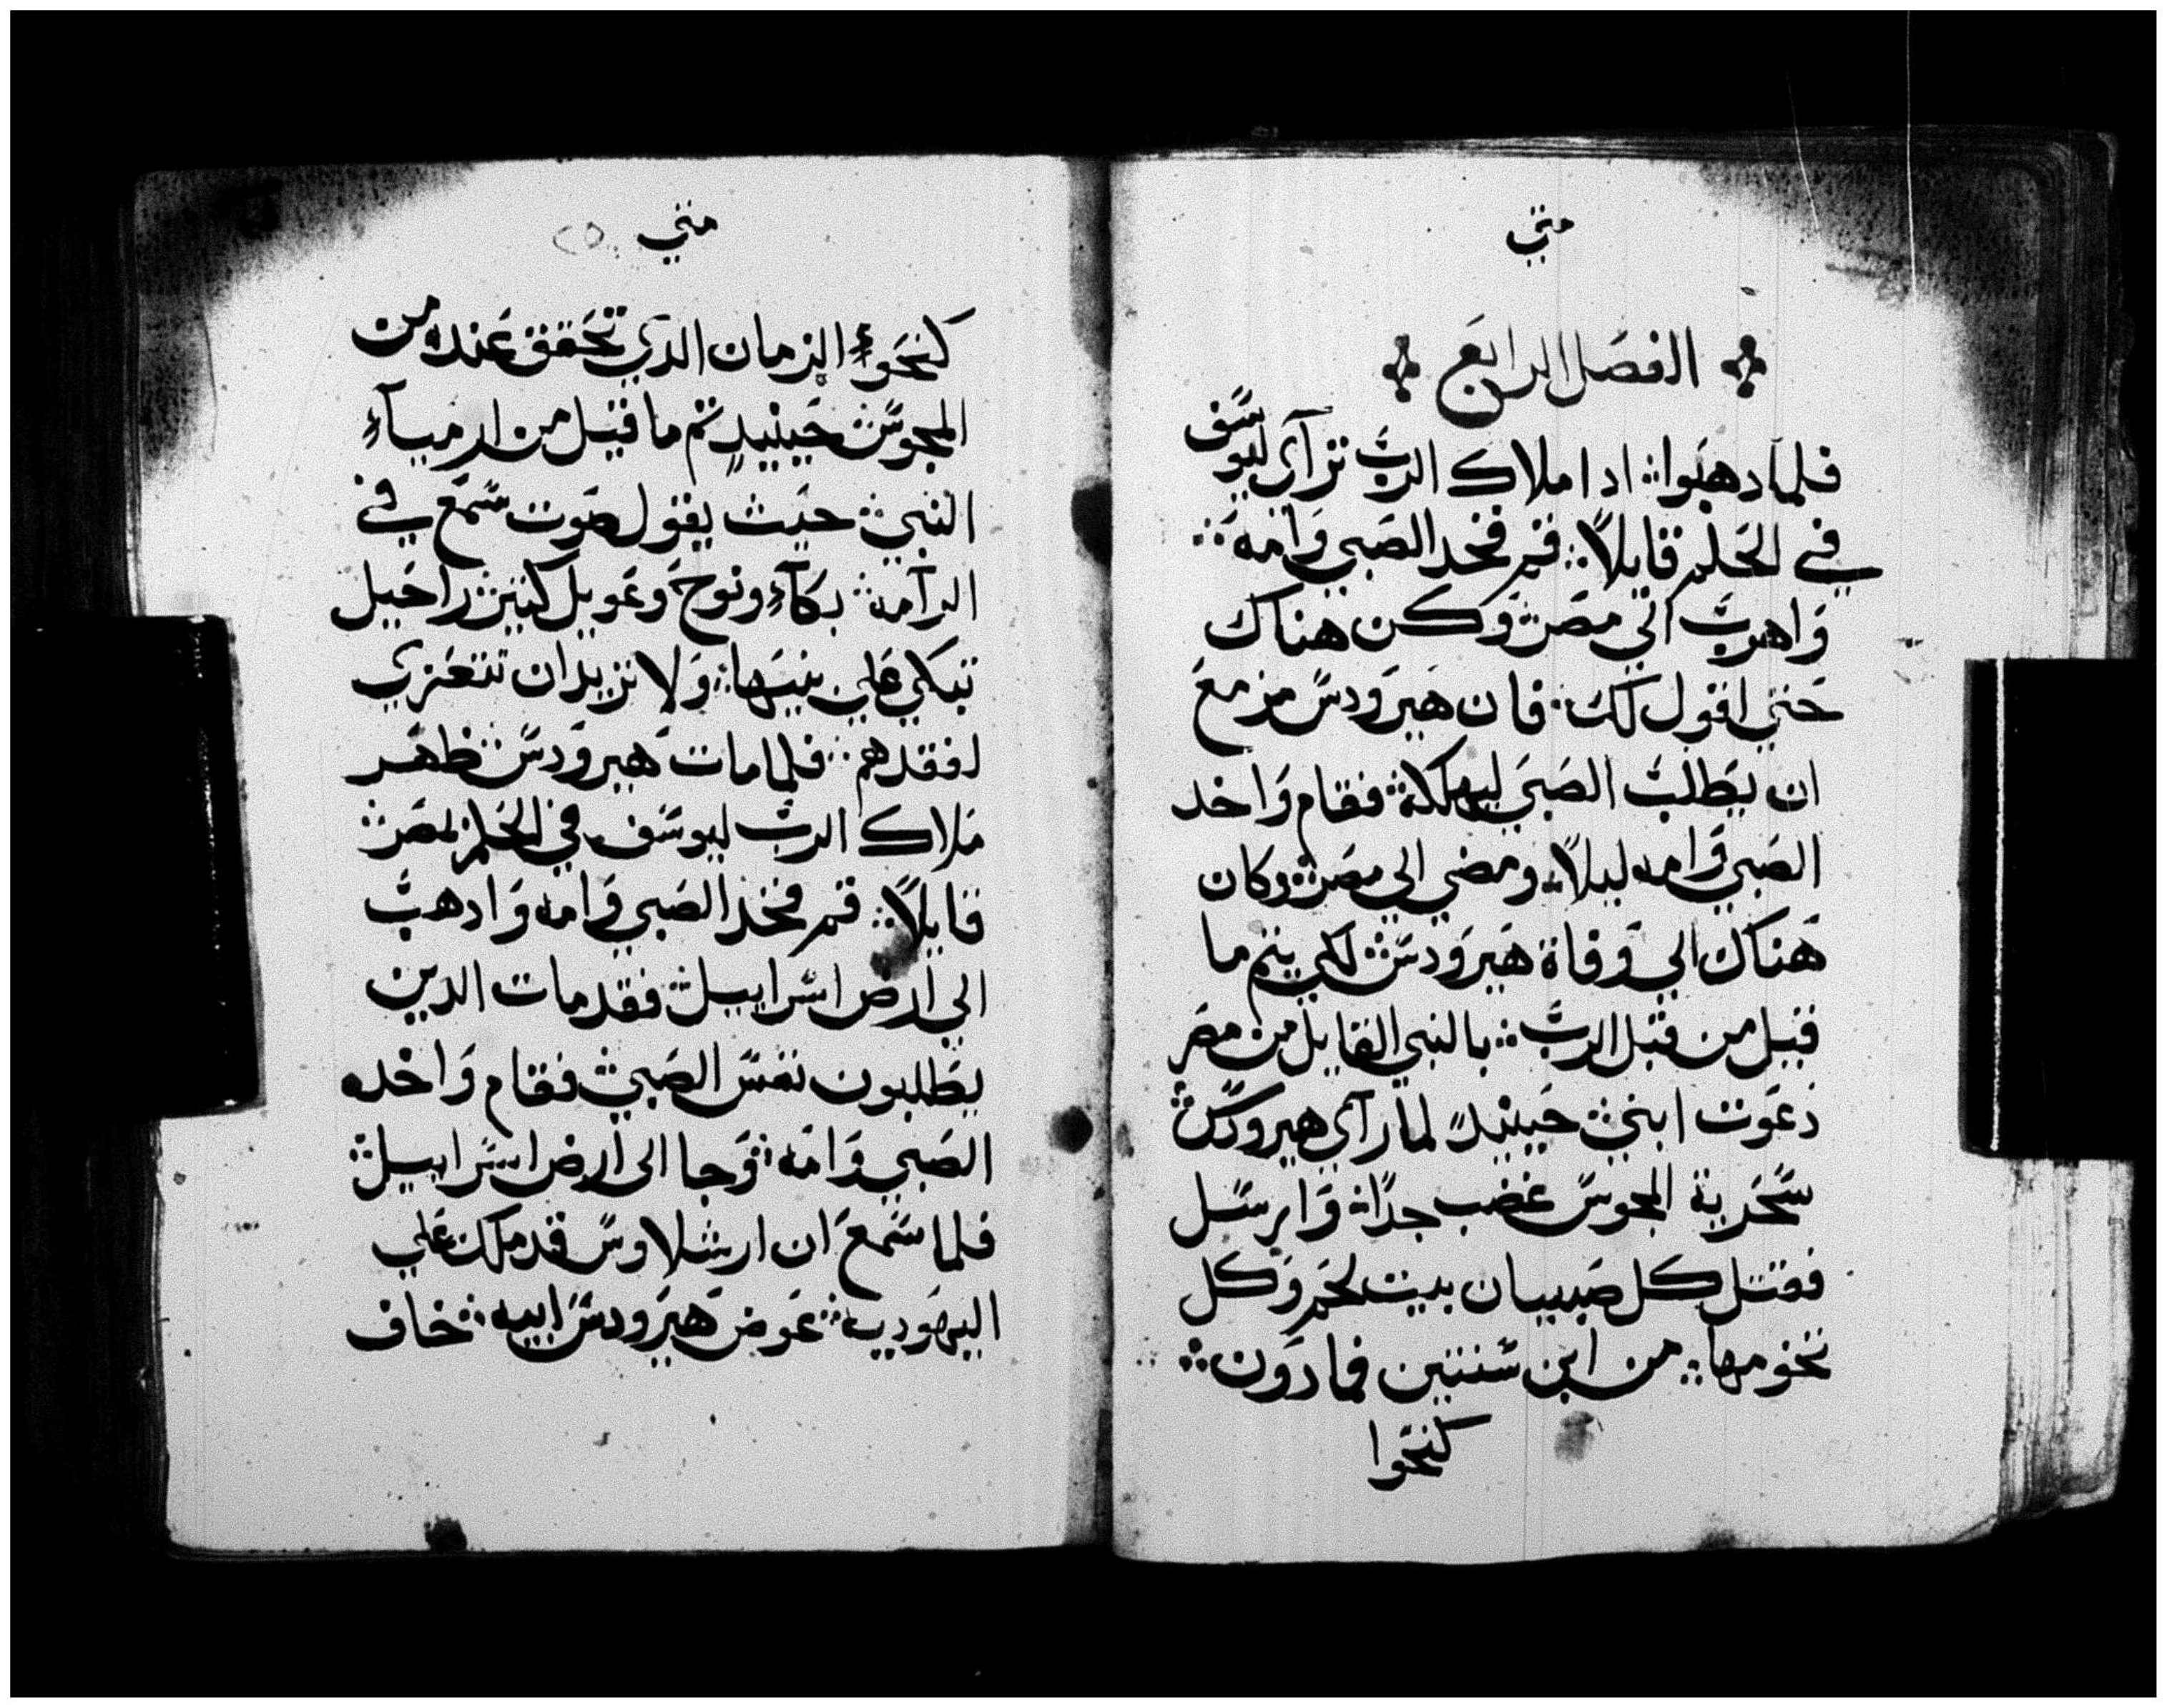 متي
الفصل الرابع
فلما دهبوا ادا ملاك الرب ترآى ليوسف
في الحلم قايلاً قم فخد الصبي وامه
واهرب الي مصر وكن هناك
حتي اقول لك فان هيرودس مزمع
ان يطلب الصبي ليهلكه فقام واخد
الصبي وامه ليلاً ومضي الي مصر وكان
هناك الي وفاة هيرودس لكي يتم ما
قيل من قبل الرب بالنبي القايل من مصر
دعوت ابني حينيدٍ لما رآي هيرودس
سخرية المجوس غضب جداً وارسل
فقتل كل صبيان بيت لحم وكل
تخومها من ابن سنتين فما دون
كنحوا
متي ٢٥
كنحوء الزمان الدي تحقق عنده من
المجوس حينيدٍ تم ما قيل من ارميآء
النبي حيث يقول صوت سمع في
الرآمه بكآء ونوح وعويل كتير راحيل
تبكي علي بنيها ولا تريد ان تتعزي
لفقدهم فلما مات هيرودس ظهر
ملاك الرب ليوسف في الحلم بمصر
قايلاً قم فخد الصبي وامه وادهب
الي ارض اسراييل فقد مات الدين
يطلبون نفس الصبي فقام واخده
الصبي وامه وجا الى ارض اسراييل
فلما سمع ان ارشلاوس قد ملك علي
اليهوديه عوض هيرودس ابيه خاف